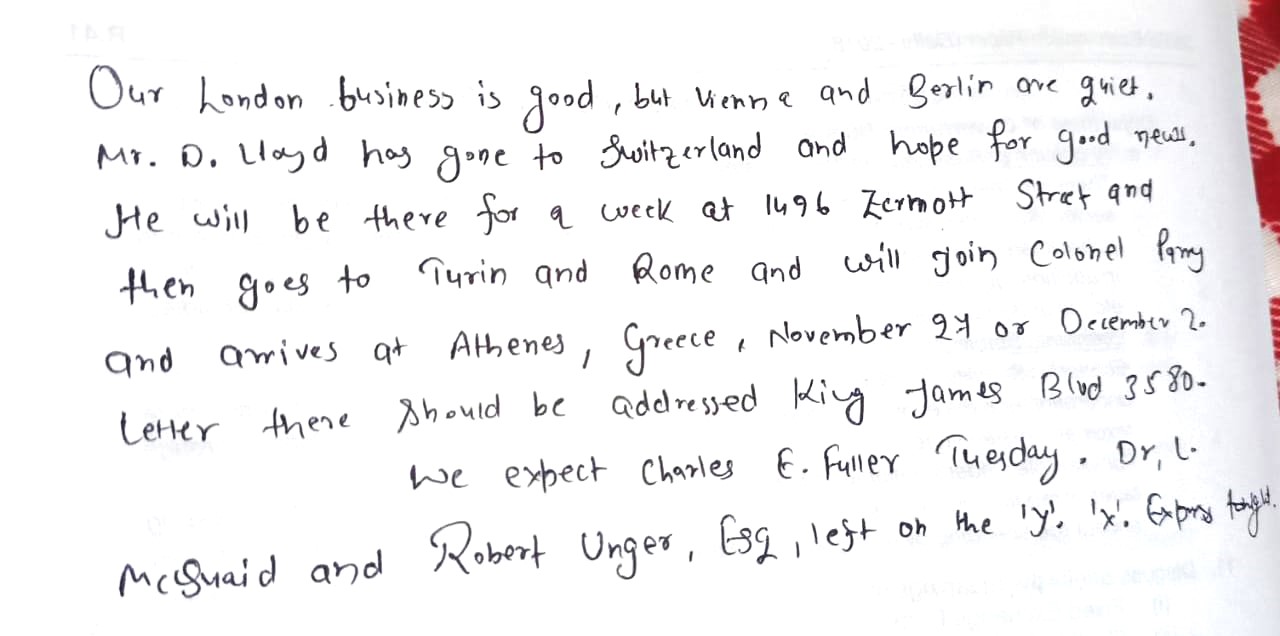 Our London business is good, but Vienna and Berlin are quiet.
Mr. D. Lloyd has gone to Switzerland and hope for good news.
He will be there for a week at 1496 Zermott Street and
then goes to Turin and Rome and will join Colonel Parry
and arrives at Athenes, Greece, November 27 or December 2.
Letter there should be addressed King James Blvd 3580.
We expect Charles E. Fuller Tuesday. Dr, L.
McQuaid and Robert Unger, Esq, left on the 'y'. 'x'. Express tonight.